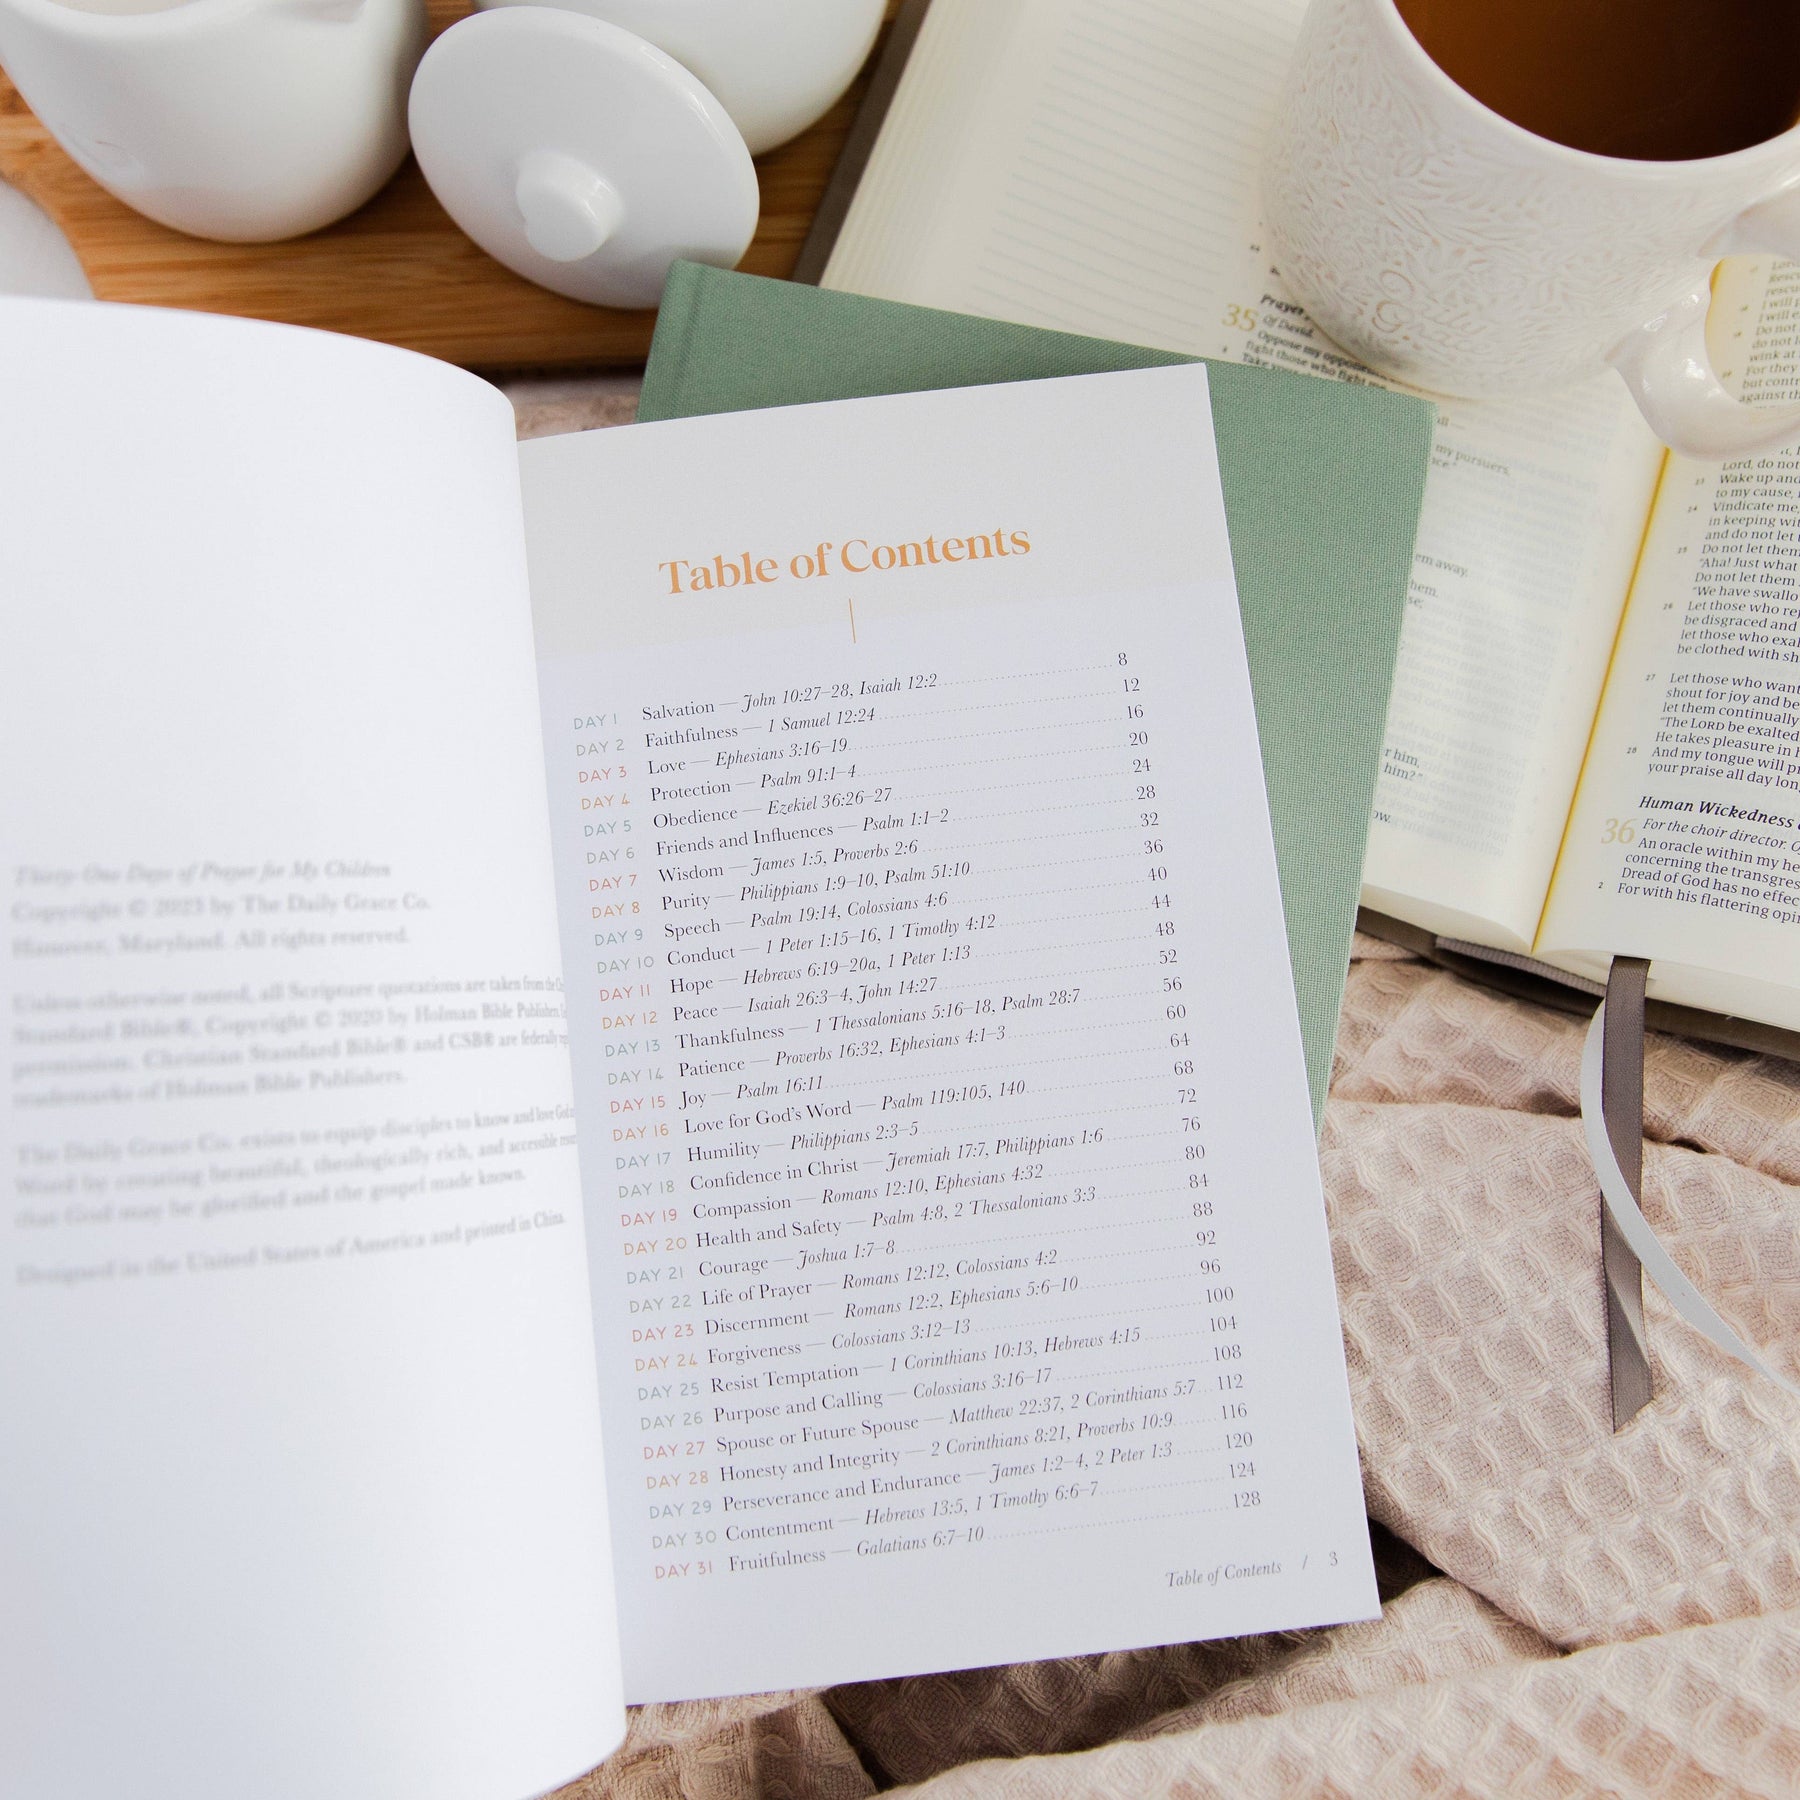 Thirty-One Days of Prayer for My Children
Copyright © 2023 by The Daily Grace Co.
Hanover, Maryland. All rights reserved.
Unless otherwise noted, all Scripture quotations are taken from the
Standard Bible®, Copyright © 2020 by Holman Bible Publishers
permission. Christian Standard Bible® and CSB® are federally
trademarks of Holman Bible Publishers.
The Daily Grace Co. exists to equip disciples to know and love God
Word by creating beautiful, theologically rich, and accessible
that God may be glorified and the gospel made known.
Designed in the United States of America and printed in China.
Table of Contents
DAY 1 Salvation — John 10:27–28, Isaiah 12:2 8
DAY 2 Faithfulness — 1 Samuel 12:24 12
DAY 3 Love — Ephesians 3:16–19 16
DAY 4 Protection — Psalm 91:1–4 20
DAY 5 Obedience — Ezekiel 36:26–27 24
DAY 6 Friends and Influences — Psalm 1:1–2 28
DAY 7 Wisdom — James 1:5, Proverbs 2:6 32
DAY 8 Purity — Philippians 1:9–10, Psalm 51:10 36
DAY 9 Speech — Psalm 19:14, Colossians 4:6 40
DAY 10 Conduct — 1 Peter 1:15–16, 1 Timothy 4:12 44
DAY 11 Hope — Hebrews 6:19–20a, 1 Peter 1:13 48
DAY 12 Peace — Isaiah 26:3–4, John 14:27 52
DAY 13 Thankfulness — 1 Thessalonians 5:16–18, Psalm 28:7 56
DAY 14 Patience — Proverbs 16:32, Ephesians 4:1–3 60
DAY 15 Joy — Psalm 16:11 64
DAY 16 Love for God's Word — Psalm 119:105, 140 68
DAY 17 Humility — Philippians 2:3–5 72
DAY 18 Confidence in Christ — Jeremiah 17:7, Philippians 1:6 76
DAY 19 Compassion — Romans 12:10, Ephesians 4:32 80
DAY 20 Health and Safety — Psalm 4:8, 2 Thessalonians 3:3 84
DAY 21 Courage — Joshua 1:7–8 88
DAY 22 Life of Prayer — Romans 12:12, Colossians 4:2 92
DAY 23 Discernment — Romans 12:2, Ephesians 5:6–10 96
DAY 24 Forgiveness — Colossians 3:12–13 100
DAY 25 Resist Temptation — 1 Corinthians 10:13, Hebrews 4:15 104
DAY 26 Purpose and Calling — Colossians 3:16–17 108
DAY 27 Spouse or Future Spouse — Matthew 22:37, 2 Corinthians 5:7 112
DAY 28 Honesty and Integrity — 2 Corinthians 8:21, Proverbs 10:9 116
DAY 29 Perseverance and Endurance — James 1:2–4, 2 Peter 1:3 120
DAY 30 Contentment — Hebrews 13:5, 1 Timothy 6:6–7 124
DAY 31 Fruitfulness — Galatians 6:7–10 128
Table of Contents / 3
Daily
Grace
35 Prayer
Of David.
Oppose my opponents
fight those who fight me
my pursuers,
em away.
r him,
him?"
Do not
do not l
wink at
For they
but contr
against th
Lord, do not
23 Wake up and
to my cause,
24 Vindicate me,
in keeping wit
and do not let
25 Do not let them
"Aha! Just what
Do not let them
"We have swallo
26 Let those who rej
be disgraced and
let those who exal
be clothed with sh
27 Let those who want
shout for joy and be
let them continually
"The LORD be exalted
He takes pleasure in
28 And my tongue will pr
your praise all day lon
Human Wickedness
36 For the choir director.
An oracle within my he
concerning the transgres
Dread of God has no effec
2 For with his flattering opin